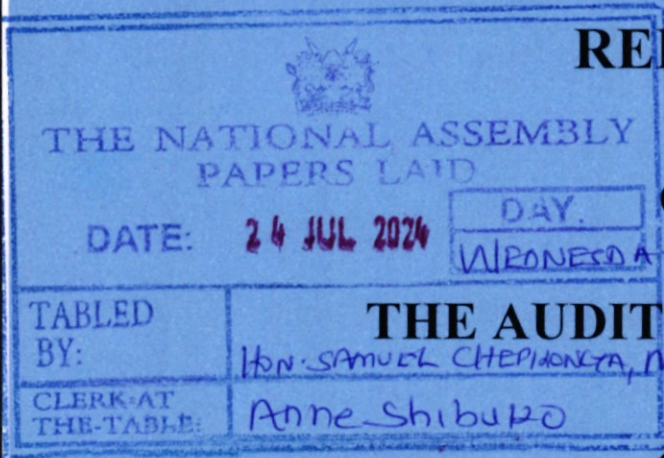 REI
THE NATIONAL ASSEMBLY
PAPERS LAID
DATE: 24 JUL 2024
DAY.
WEDNESDA
TABLED BY:
THE AUDIT
HON. SAMUEL CHEPKONGA, M
CLERK-AT THE-TABLE:
Anne Shibuko